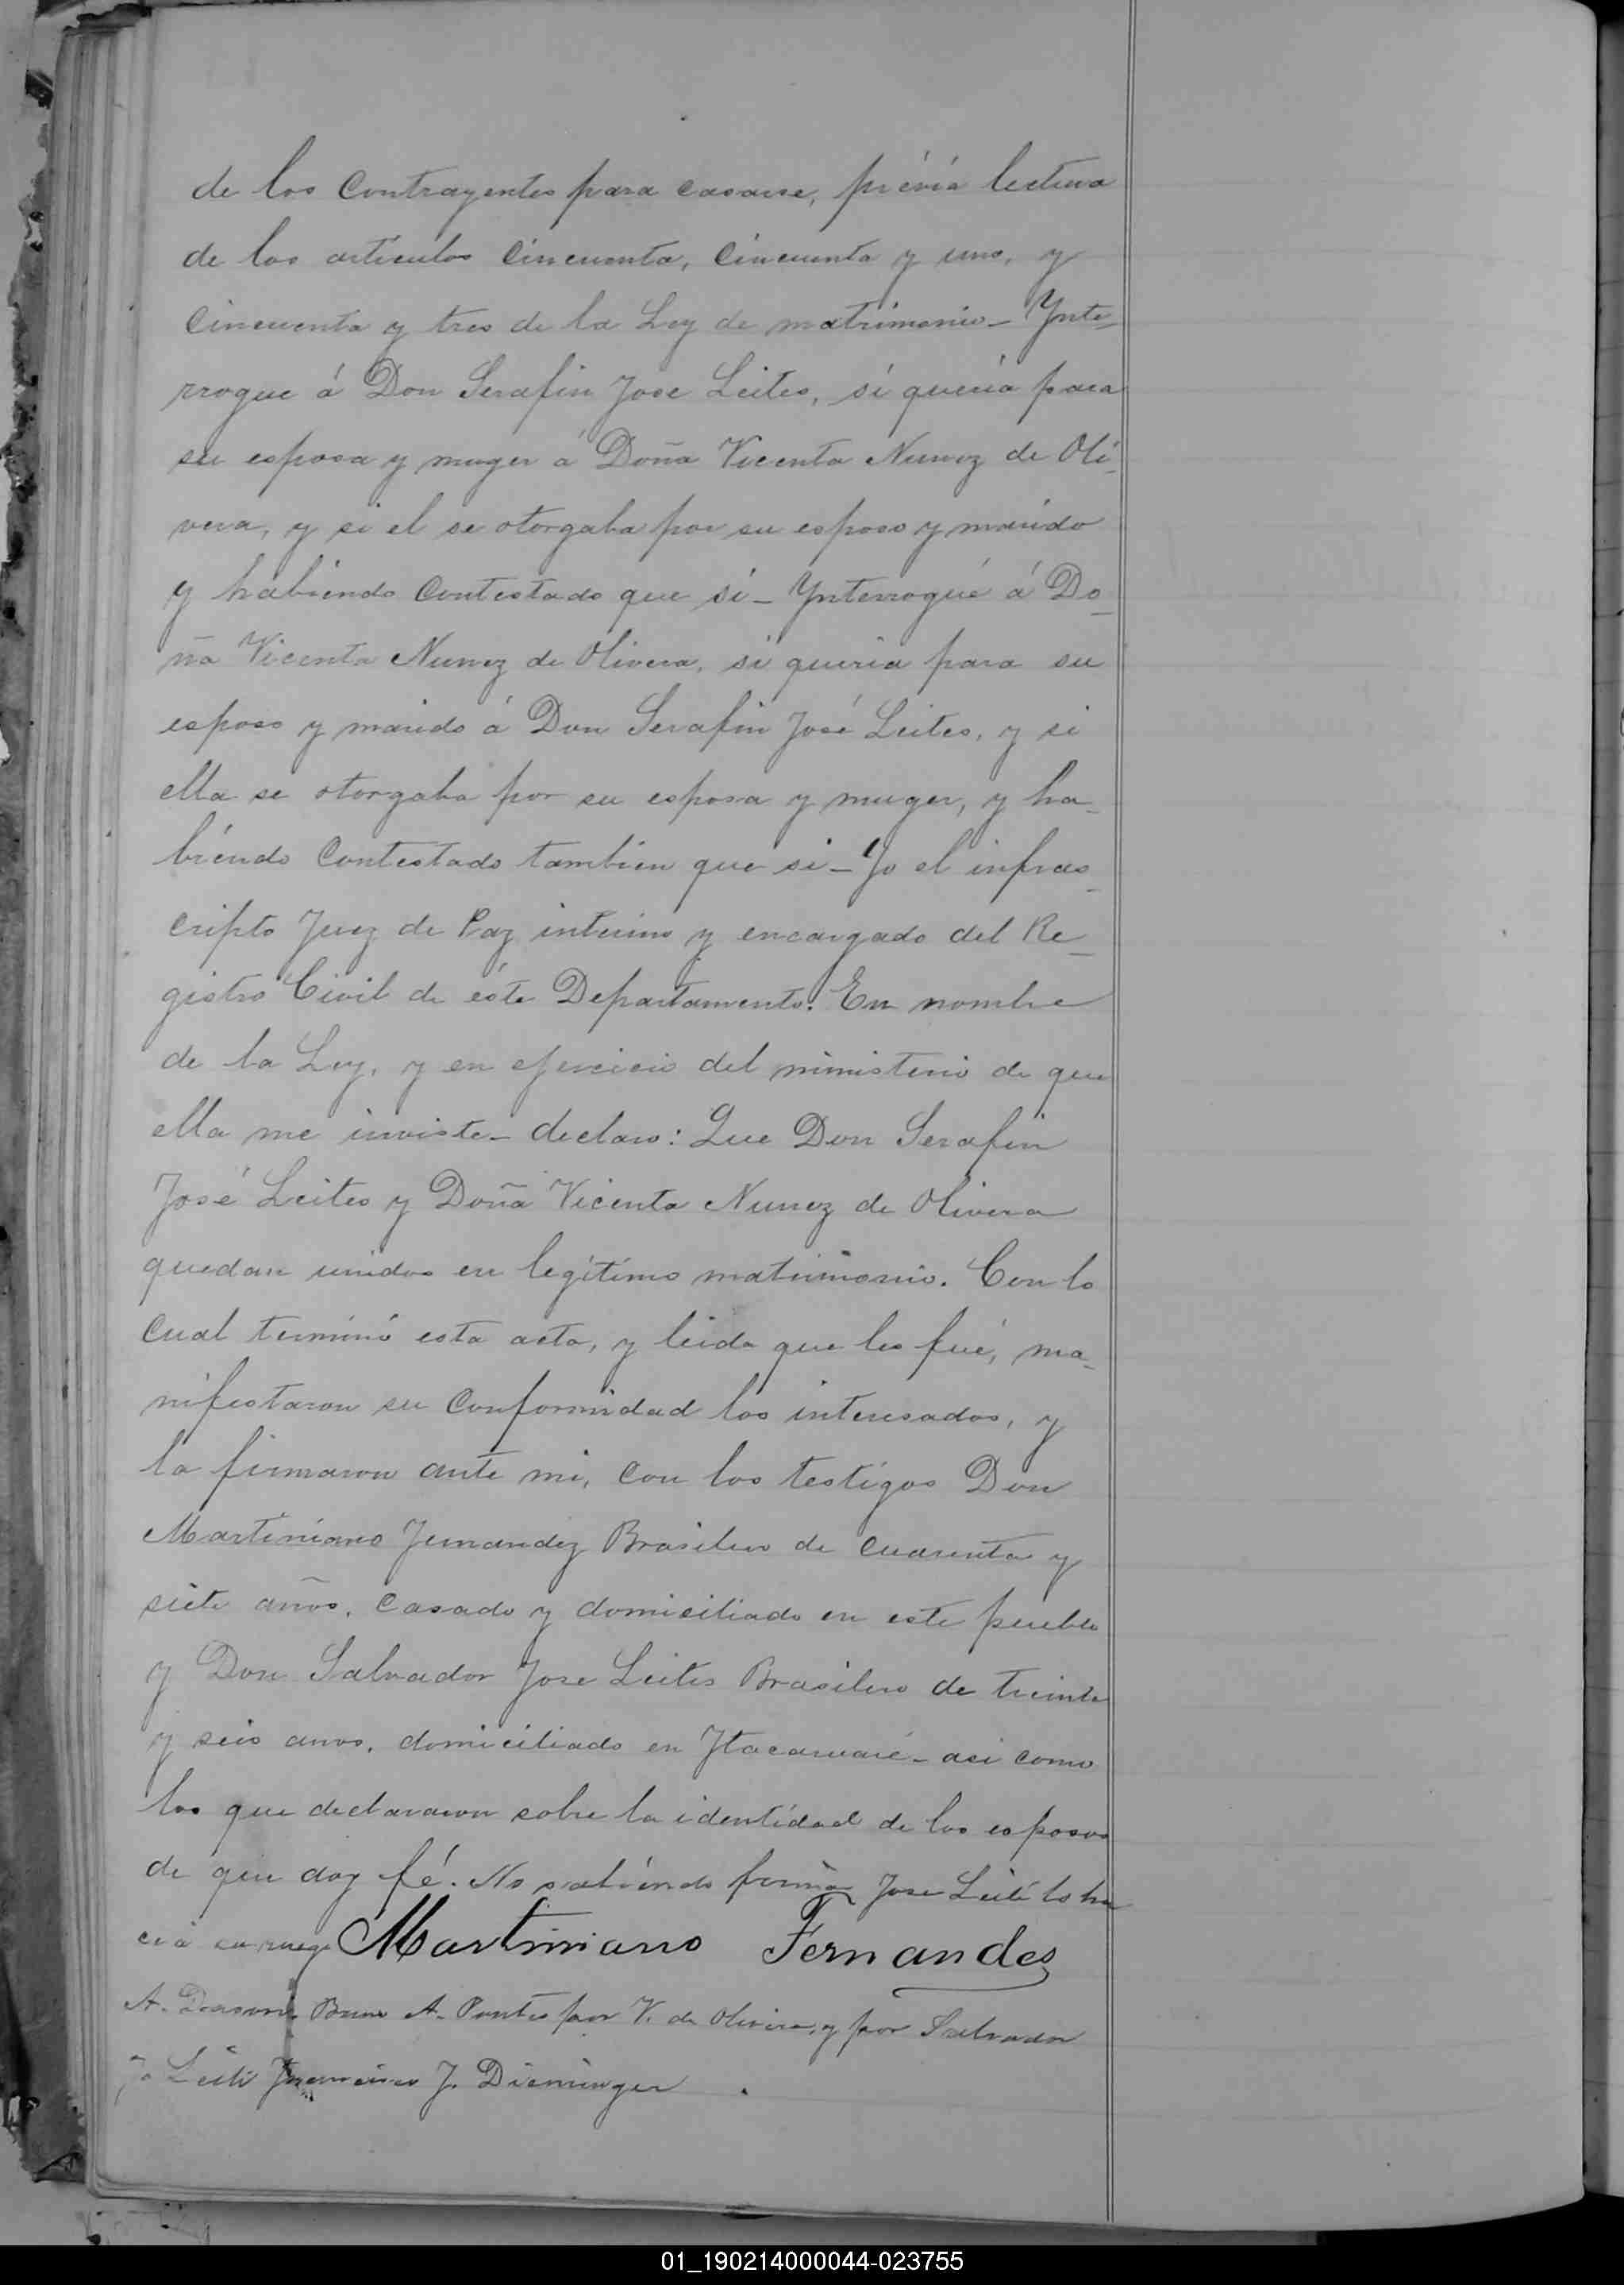 de los Contrayentes para casarse, prévia lectura
de los articulos Cincuenta, Cincuenta y uno, y
Cincuenta y tres de la Ley de matrimonio_ Ynte_
rrogue á Don Serafin Jose Leites, si queria para
su esposa y muger á Doña Vicenta Nunez de Oli_
vera, y si el se otorgaba por su esposo y marido
y habiendo Contestado que si_ Ynterrogué á Do_
ña Vicenta Nunez de Olivera, si queria para su
esposo y marido á Don Serafin José Leites, y si
ella se otorgaba por su esposa y muger, y ha_
biendo Contestado tambien que si_ Yo el infras_
cripto Juez de Paz interino y encargado del Re_
gistro Civil de éste Departamento. En nombre
de la Ley, y en ejercicio del ministerio de que
ella me inviste_ declaro: Que Don Serafin
José Leites y Doña Vicenta Nunez de Olivera
quedan unidos en legítimo matrimonio. Con lo
Cual terminó esta acta, y leida que les fué, ma_
nifestaron su Conformidad los interesados, y
la firmaron ante mi, Con los testigos Don
Martiniano Fernandez Brasilero de Cuarenta y
siete años, Casado y domiciliado en este pueblo
y Don Salvador Jose Leites Brasilero de treinta
y seis anos, domiciliado en Itacaruaré_ asi como
los que declararon sobre la identidad de los esposos
de que doy fé. No sabiendo firmar Jose Leite lo ha
ce á su ruego Martiniano Fernandes
A. Pontes por V. de Olivera, y por Salvador
Jo Leite Francisco J. Dieminger
01_190214000044-023755